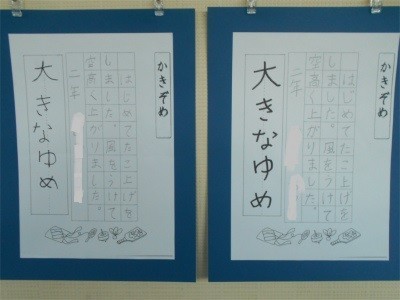 かきぞめ
はじめてたこ上げを
しました。風をうけて
空高く上がりました。
二年
大きなゆめ
かきぞめ
はじめてたこ上げを
しました。風をうけて
空高く上がりました。
二年
大きなゆめ